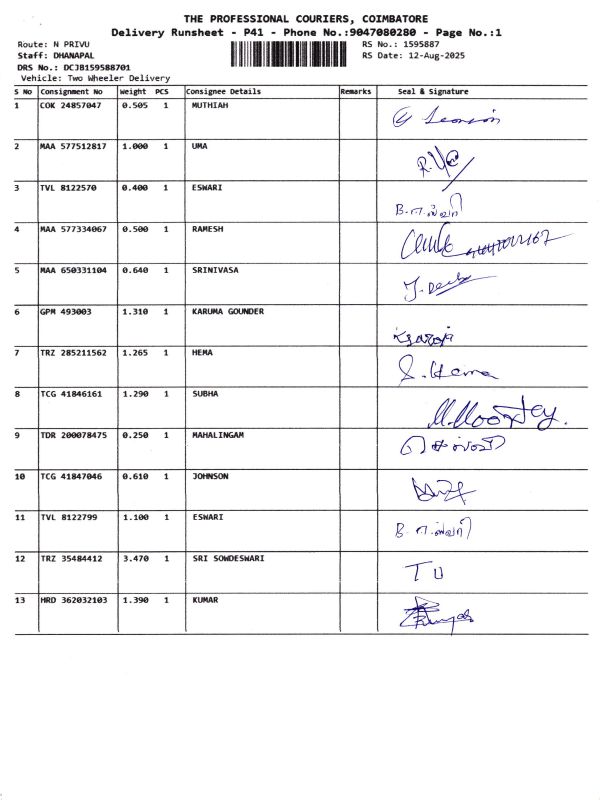 THE PROFESSIONAL COURIERS, COIMBATORE
Delivery Runsheet - P41 - Phone No.:9047080280 - Page No.:1
Route: N PRIVU RS No.: 1595887
Staff: DHANAPAL RS Date: 12-Aug-2025
DRS No.: DCJB159588701
Vehicle: Two Wheeler Delivery
S No Consignment No Weight PCS Consignee Details Remarks Seal & Signature
1 COK 24857047 0.505 1 MUTHIAH
2 MAA 577512817 1.000 1 UMA
3 TVL 8122570 0.400 1 ESWARI B.ஈஸ்வரி
4 MAA 577334067 0.500 1 RAMESH
5 MAA 650331104 0.640 1 SRINIVASA
6 GPM 493003 1.310 1 KARUMA GOUNDER
7 TRZ 285211562 1.265 1 HEMA S. Hema
8 TCG 41846161 1.290 1 SUBHA
9 TDR 200078475 0.250 1 MAHALINGAM
10 TCG 41847046 0.610 1 JOHNSON
11 TVL 8122799 1.100 1 ESWARI B.ஈஸ்வரி
12 TRZ 35484412 3.470 1 SRI SOWDESWARI TU
13 HRD 362032103 1.390 1 KUMAR